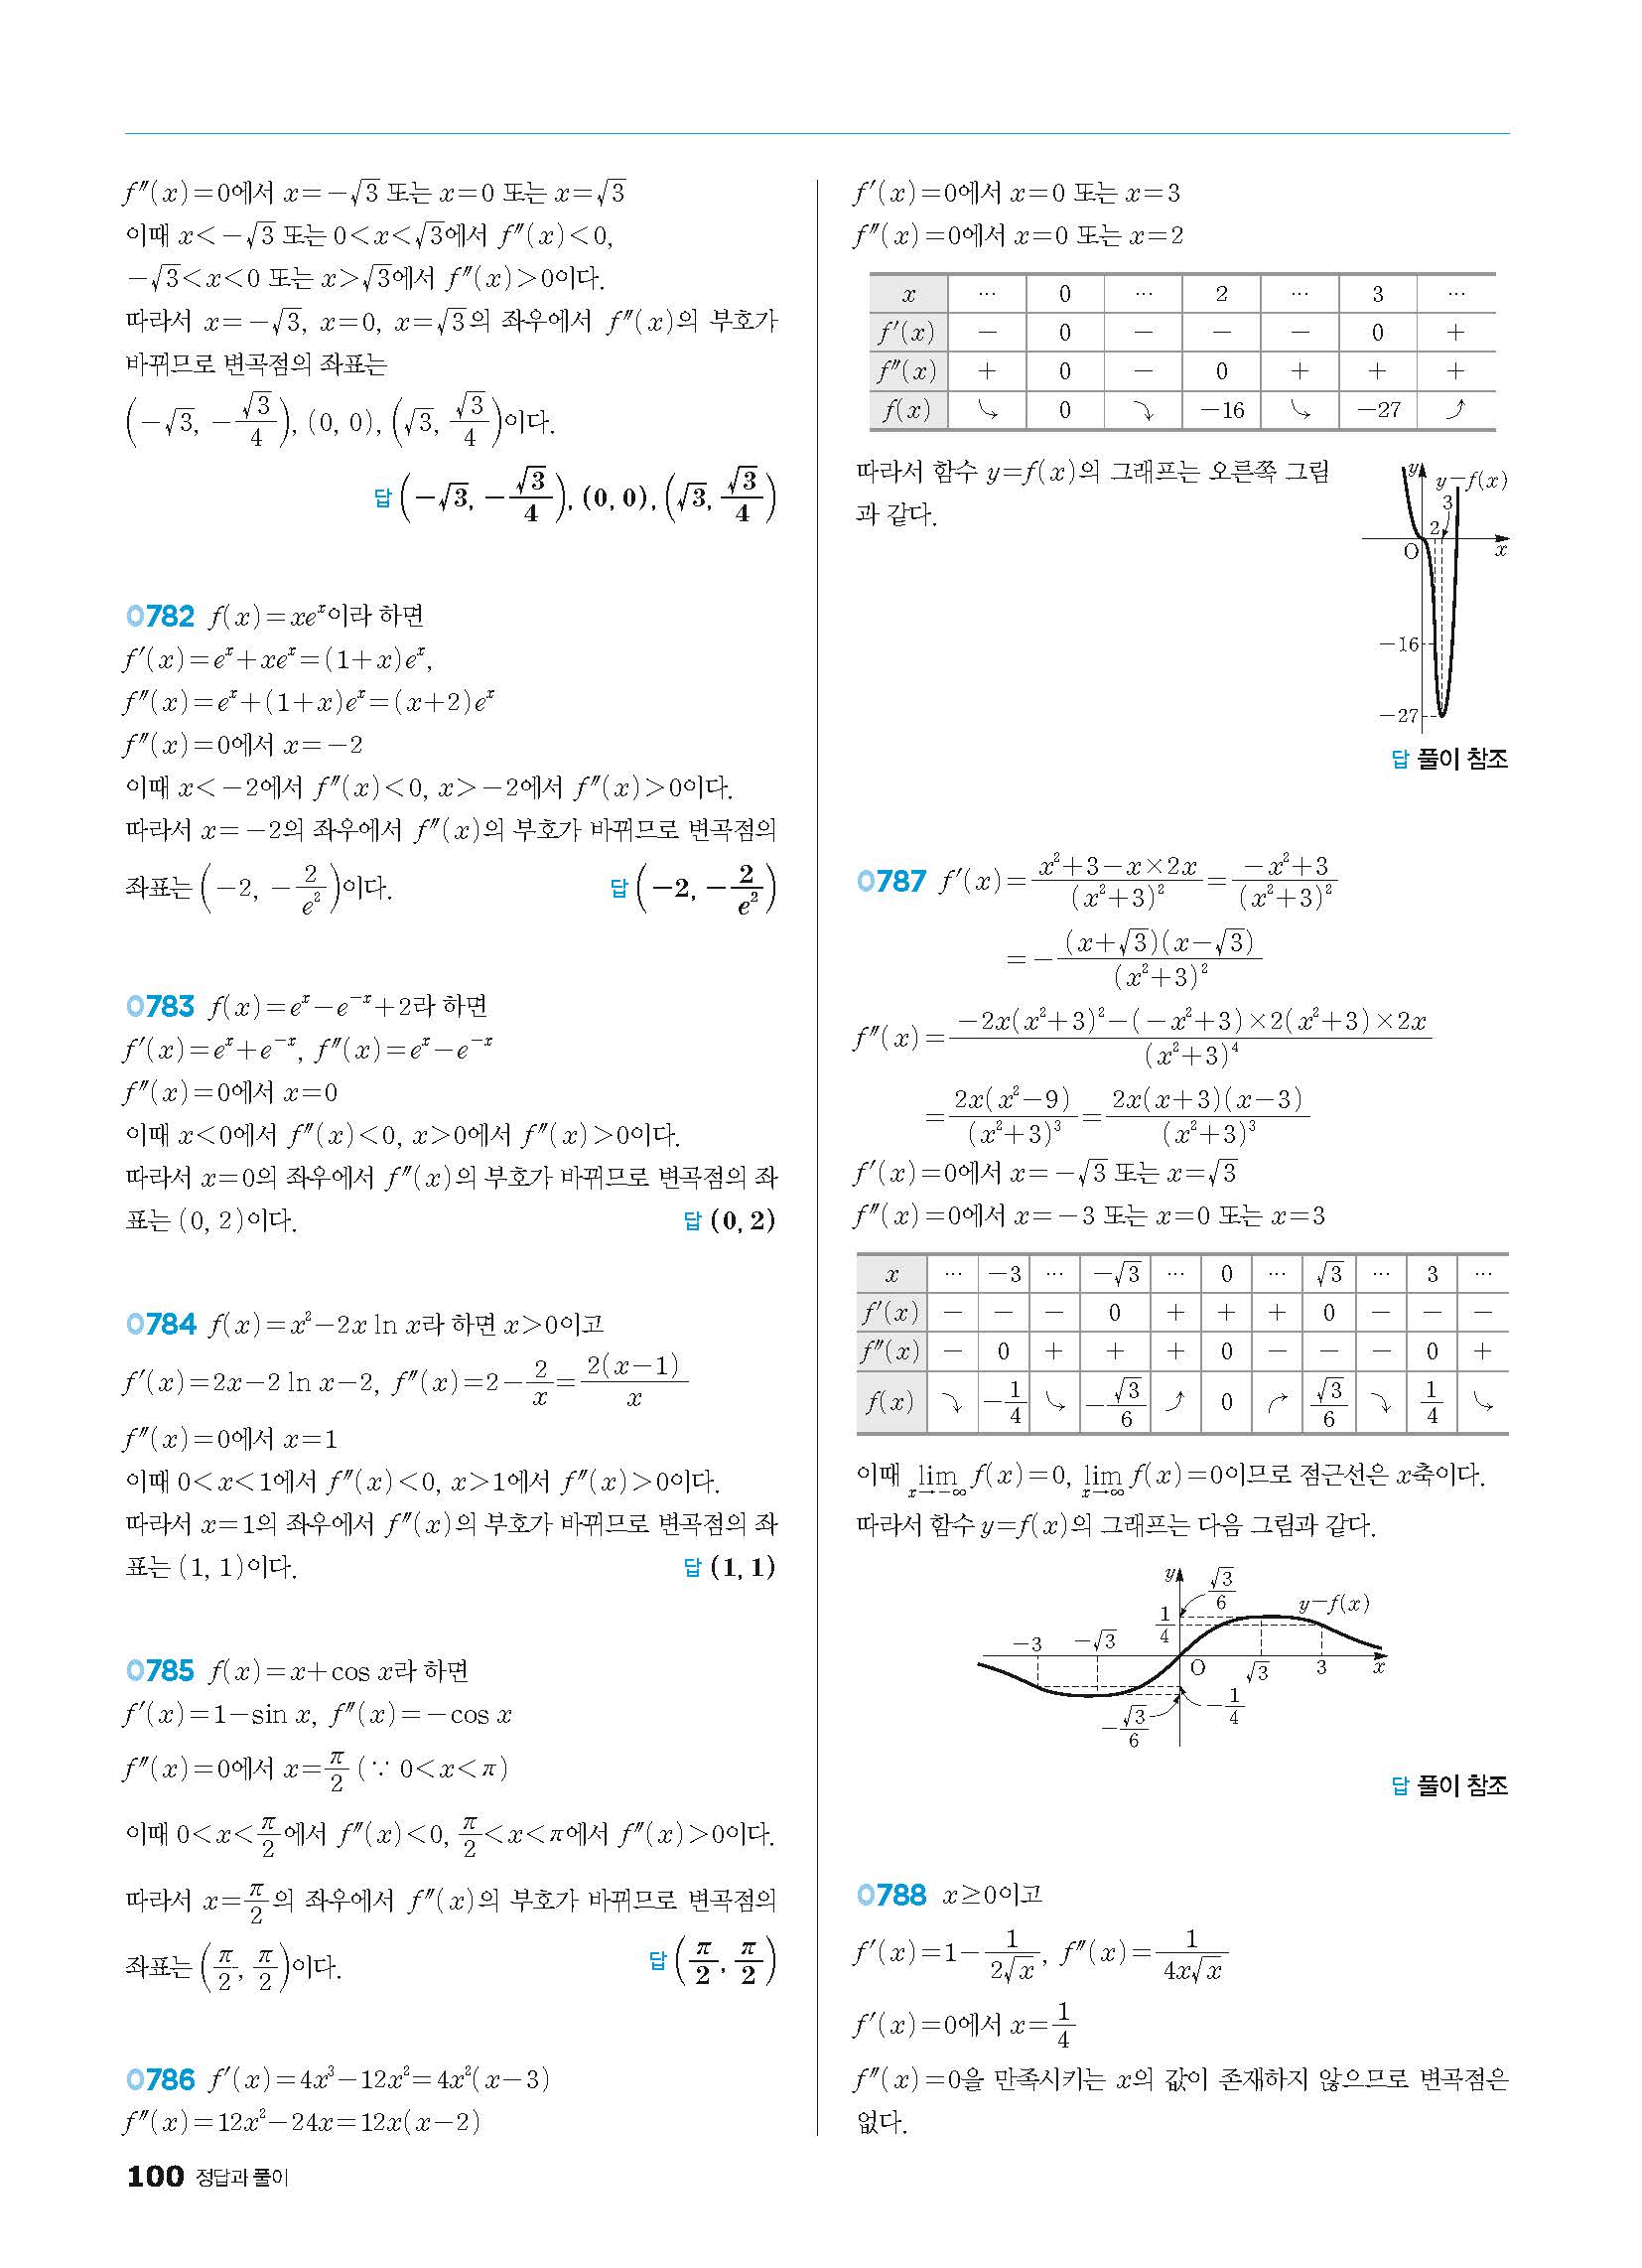 f″(x)=0에서 x=-√3 또는 x=0 또는 x=√3
이때 x<-√3 또는 0<x<√3에서 f″(x)<0,
-√3<x<0 또는 x>√3에서 f″(x)>0이다.
따라서 x=-√3, x=0, x=√3의 좌우에서 f″(x)의 부호가
바뀌므로 변곡점의 좌표는
(-√3, -√3/4), (0, 0), (√3, √3/4)이다.
답 (-√3, -√3/4), (0, 0), (√3, √3/4)
0782 f(x)=xeˣ이라 하면
f′(x)=eˣ+xeˣ=(1+x)eˣ,
f″(x)=eˣ+(1+x)eˣ=(x+2)eˣ
f″(x)=0에서 x=-2
이때 x<-2에서 f″(x)<0, x>-2에서 f″(x)>0이다.
따라서 x=-2의 좌우에서 f″(x)의 부호가 바뀌므로 변곡점의
좌표는 (-2, -2/e²)이다. 답 (-2, -2/e²)
0783 f(x)=eˣ-e⁻ˣ+2라 하면
f′(x)=eˣ+e⁻ˣ, f″(x)=eˣ-e⁻ˣ
f″(x)=0에서 x=0
이때 x<0에서 f″(x)<0, x>0에서 f″(x)>0이다.
따라서 x=0의 좌우에서 f″(x)의 부호가 바뀌므로 변곡점의 좌
표는 (0, 2)이다. 답 (0, 2)
0784 f(x)=x²-2x ln x라 하면 x>0이고
f′(x)=2x-2 ln x-2, f″(x)=2-2/x=2(x-1)/x
f″(x)=0에서 x=1
이때 0<x<1에서 f″(x)<0, x>1에서 f″(x)>0이다.
따라서 x=1의 좌우에서 f″(x)의 부호가 바뀌므로 변곡점의 좌
표는 (1, 1)이다. 답 (1, 1)
0785 f(x)=x+cos x라 하면
f′(x)=1-sin x, f″(x)=-cos x
f″(x)=0에서 x=π/2 (∵ 0<x<π)
이때 0<x<π/2에서 f″(x)<0, π/2<x<π에서 f″(x)>0이다.
따라서 x=π/2의 좌우에서 f″(x)의 부호가 바뀌므로 변곡점의
좌표는 (π/2, π/2)이다. 답 (π/2, π/2)
0786 f′(x)=4x³-12x²=4x²(x-3)
f″(x)=12x²-24x=12x(x-2)
f′(x)=0에서 x=0 또는 x=3
f″(x)=0에서 x=0 또는 x=2
x … 0 … 2 … 3 …
f′(x) - 0 - - - 0 +
f″(x) + 0 - 0 + + +
f(x) ⤷ 0 ⤵ -16 ⤷ -27 ⤴
따라서 함수 y=f(x)의 그래프는 오른쪽 그림
과 같다.
y y=f(x)
3
2
O x
-16
-27
답 풀이 참조
0787 f′(x)=(x²+3-x×2x)/(x²+3)²=(-x²+3)/(x²+3)²
=-(x+√3)(x-√3)/(x²+3)²
f″(x)={-2x(x²+3)²-(-x²+3)×2(x²+3)×2x}/(x²+3)⁴
=2x(x²-9)/(x²+3)³=2x(x+3)(x-3)/(x²+3)³
f′(x)=0에서 x=-√3 또는 x=√3
f″(x)=0에서 x=-3 또는 x=0 또는 x=3
x … -3 … -√3 … 0 … √3 … 3 …
f′(x) - - - 0 + + + 0 - - -
f″(x) - 0 + + + 0 - - - 0 +
f(x) ⤵ -1/4 ⤷ -√3/6 ⤴ 0 ↱ √3/6 ⤵ 1/4 ⤷
이때 lim x→-∞ f(x)=0, lim x→∞ f(x)=0이므로 점근선은 x축이다.
따라서 함수 y=f(x)의 그래프는 다음 그림과 같다.
y √3/6 y=f(x)
1/4
-3 -√3
O √3 3 x
-1/4
-√3/6
답 풀이 참조
0788 x≥0이고
f′(x)=1-1/(2√x), f″(x)=1/(4x√x)
f′(x)=0에서 x=1/4
f″(x)=0을 만족시키는 x의 값이 존재하지 않으므로 변곡점은
없다.
100 정답과 풀이